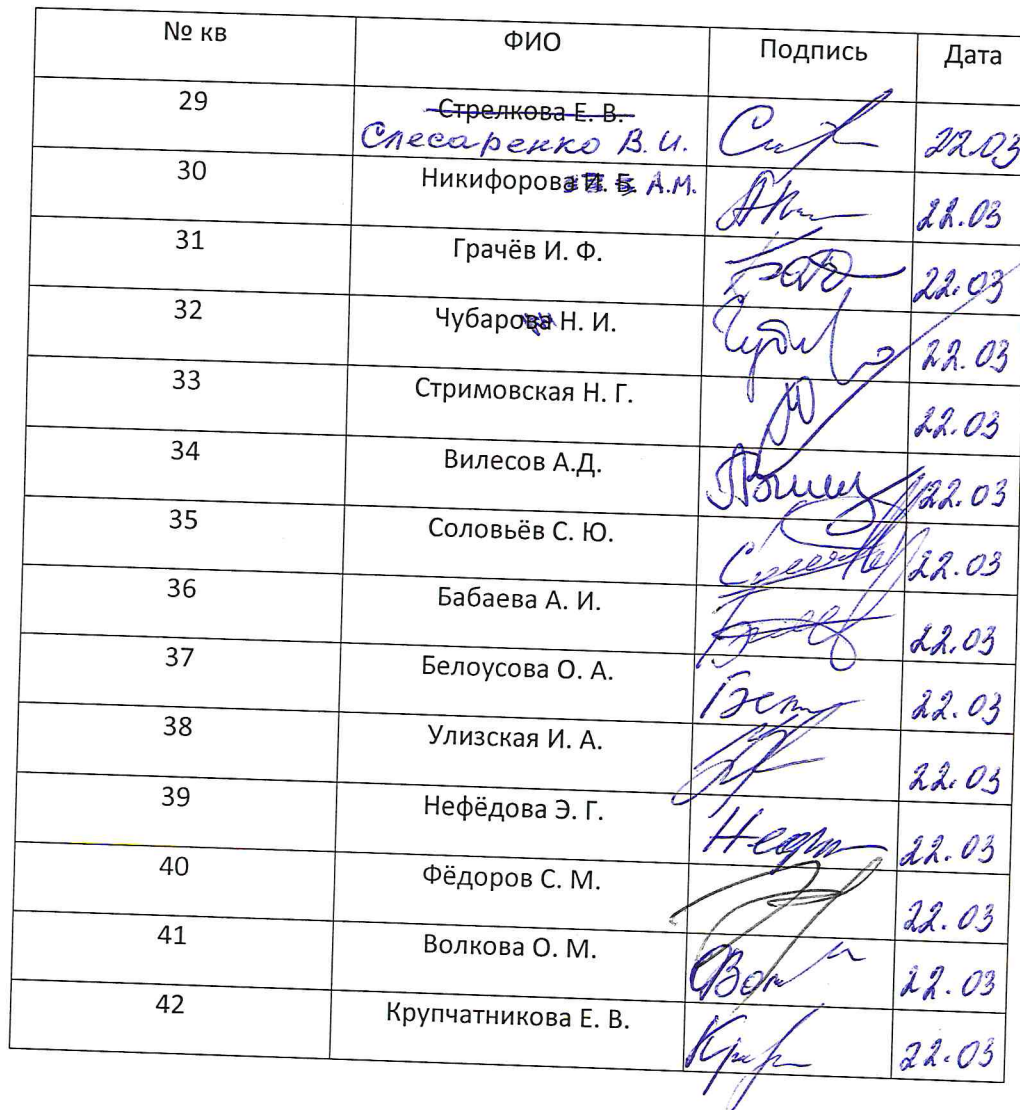 № кв ФИО Подпись Дата
29 Стрелкова Е. В. 22.03
Слесаренко В. И.
30 Никифорова А.М. 22.03
31 Грачёв И. Ф. 22.03
32 Чубарова Н. И. 22.03
33 Стримовская Н. Г. 22.03
34 Вилесов А.Д. 22.03
35 Соловьёв С. Ю. 22.03
36 Бабаева А. И. 22.03
37 Белоусова О. А. 22.03
38 Улизская И. А. 22.03
39 Нефёдова Э. Г. 22.03
40 Фёдоров С. М. 22.03
41 Волкова О. М. 22.03
42 Крупчатникова Е. В. 22.03